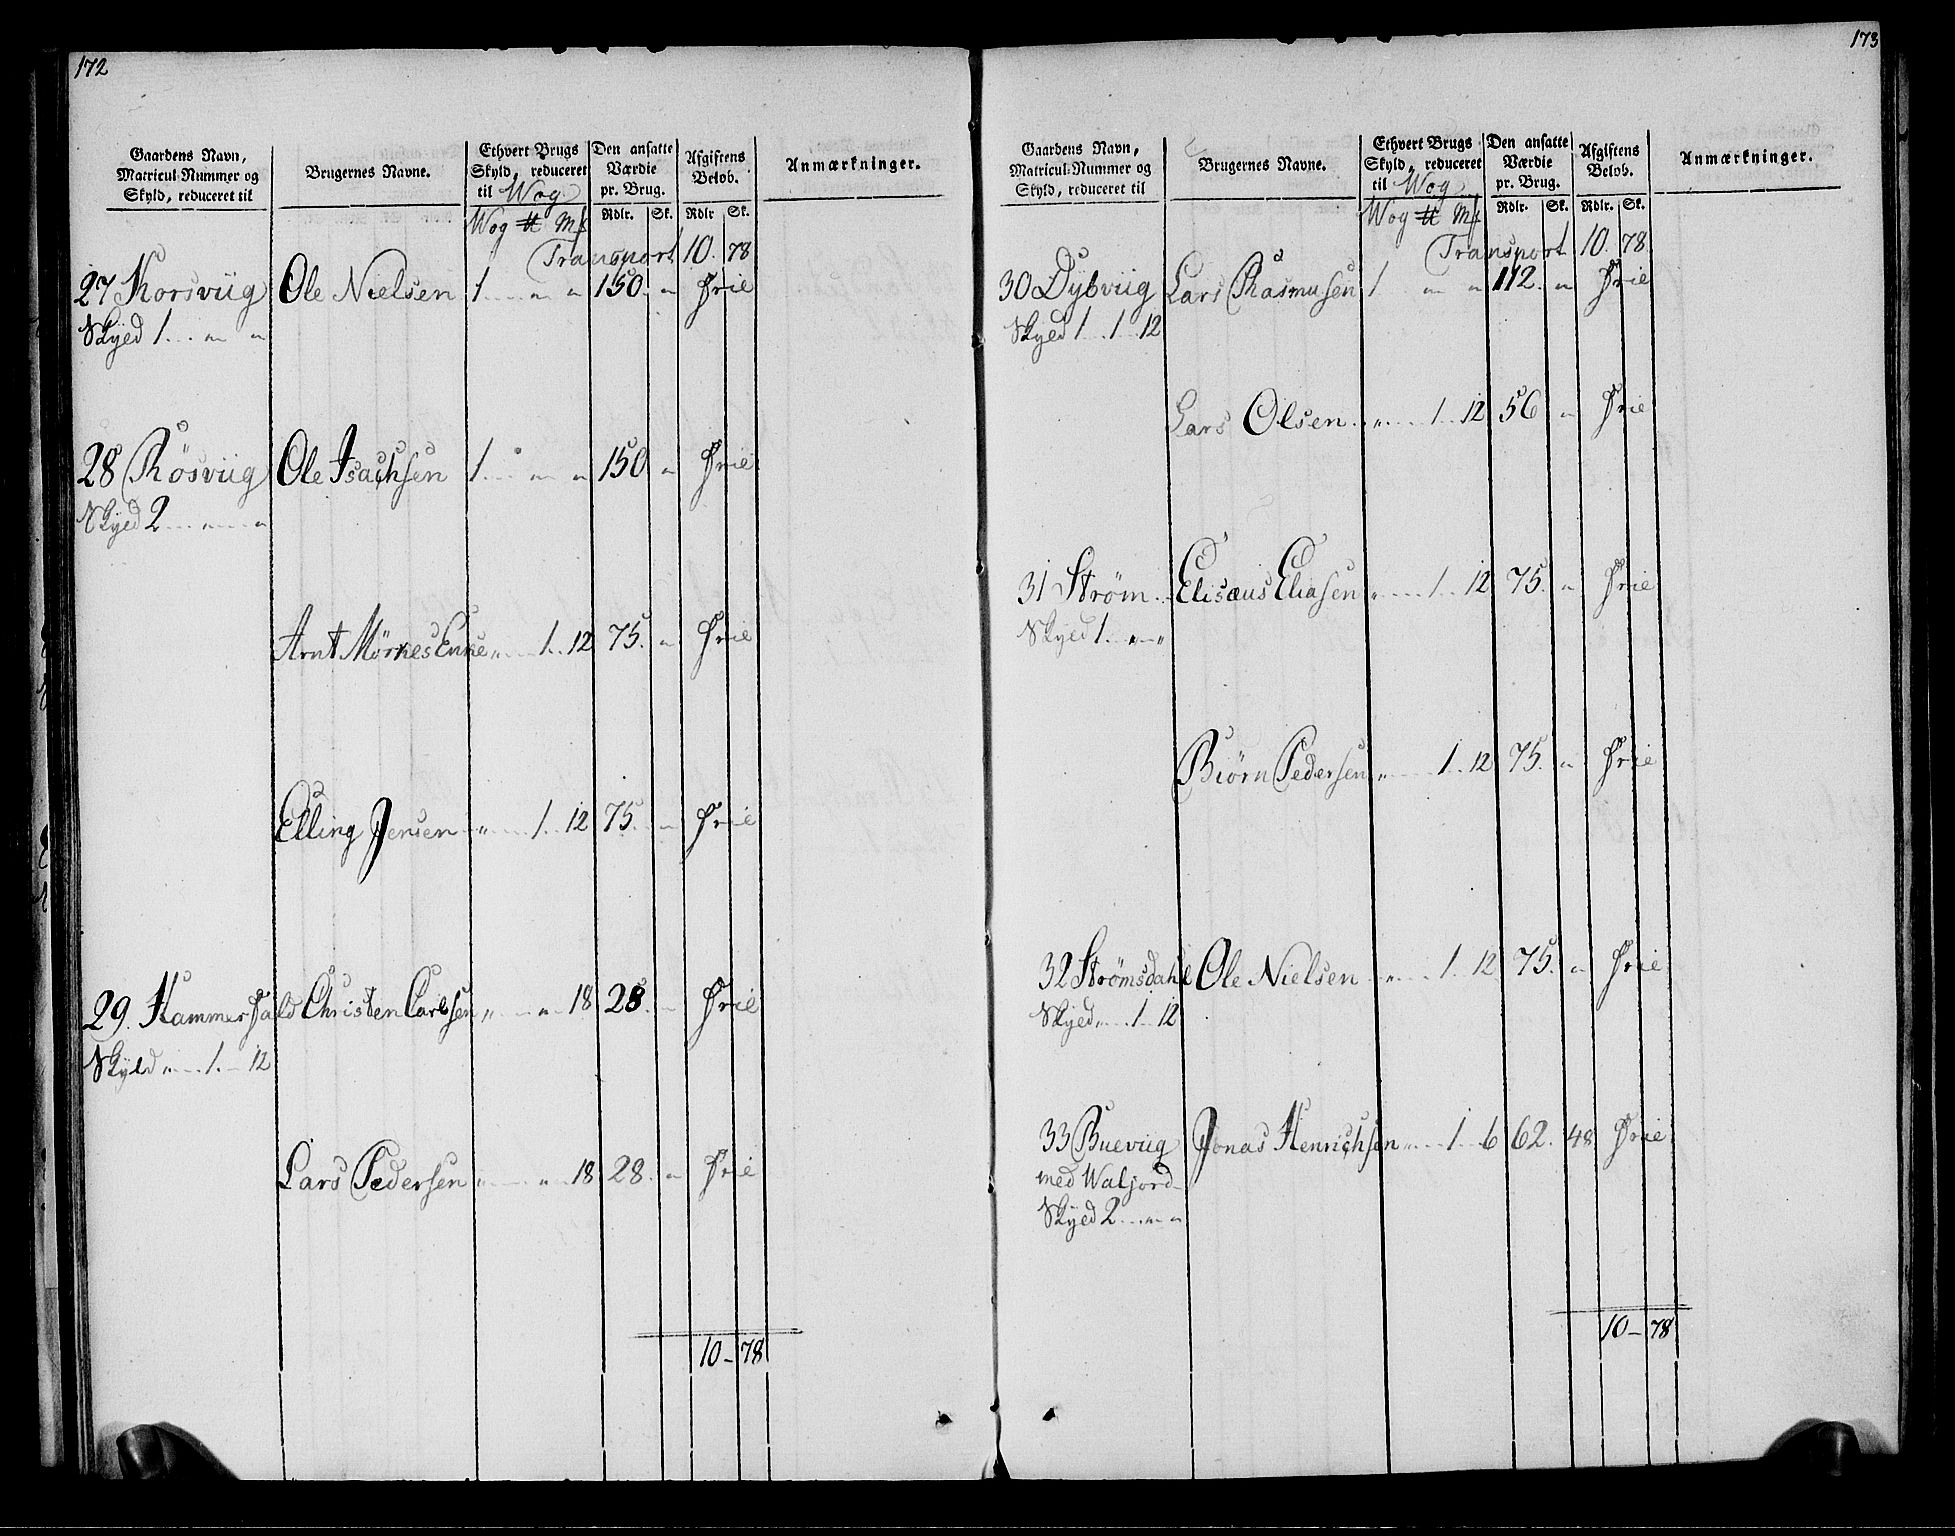 172
Gaardens Navn, Matricul-Nummer og Skyld, reduceret til
Brugernes Navne.
Ethvert Brugs Skyld, reduceret til Wog
Den ansatte Værdie pr. Brug.
Afgiftens Beløb.
Anmærkninger.
Wog ℔ Mk Rdlr. Sk. Rdlr Sk.
Transport 10. 78
27 Korsviig Ole Nielsen 1 . . . " " 150. " Frie
Skyld 1 . . . " "
28 Røsviig Ole Isachsen 1 . . . " " 150 " Frie
Skyld 2 . . . " . . . "
Arnt Mörkes Enke " . . . 1 . . 12 75. " Frie
Elling Jensen " . . . 1 . . 12 75. " Frie
29. Hammerfald Christen Carlsen " . . . " . . 18 28. " Frie
Skyld " . . . 1. — 12
Lars Pedersen " . . . " . . 18 28. " Frie
10 – 78
173
Gaardens Navn, Matricul-Nummer og Skyld, reduceret til
Brugernes Navne.
Ethvert Brugs Skyld, reduceret til Wog
Den ansatte Værdie pr. Brug.
Afgiftens Beløb.
Anmærkninger.
Wog ℔ Mk Rdlr. Sk. Rdlr. Sk.
Transport 10. 78
30 Dybviig Lars Rasmusen 1 " " 112. " Frie
Skyld 1 . . . 1 . . 12
Lars Olsen " . . . 1 . . 12 56 " Frie
31 Strøm Elisæus Eliasen " . . . 1 . . 12 75. " Frie
Skyld 1 . . " — "
Biörn Pedersen " . . . 1 . . 12 75. " Frie
32 Strømsdahl Ole Nielsen " . . . 1 . . 12 75. " Frie
Skyld " . . . 1 — 12
33 Bueviig Jonas Henrichsen " . . . 1 . . 6 62. 48 Frie
med Waljord
Skyld 2 . . . " — "
10 – 78